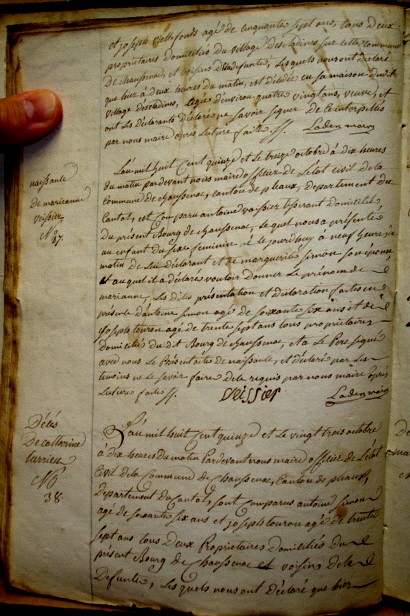 et joseph deltefonds agé de cinquante sept ans, tous deux
propriétaires domiciliés du village descladines, sur cette commune
de chaussenac, et voisins du defunte, Lesquels nous ont déclaré
que hier à deux heures du matin, est décédée en sa maison dudit
village descladines, agée denviron quatre vingt ans, veuve, et
ont les déclarants déclaré ne savoir signer de ce interpellés
par nous maire après lecture faite ./.
naissance
de marianne
veissier
N.º
37.
L'an mil huit cent quinze et le treize octobre à dix heures
du matin par devant nous maire officier de L'état civil de la
commune de chaussenac, canton de pleaux, département du
Cantal, est comparu antoine vaissier tisserant domicilié,
du présent Bourg de chaussenac, lequel nous a présenté
un enfant du sexe feminin né le jourdhuy à neuf heures du
matin de lui déclarant et de marguerite simon son épouse,
et auquel il a déclaré vouloir donner le prénom de
marianne, les dites présentation et déclaration faites en
présence d'antoine simon agé de soixante six ans et de
joseph tourou agé de trente sept ans tous propriétaires
domiciliés du dit Bourg de chaussenac, et a le Père signé
avec nous le Présent acte de naissance, et déclaré par les
temoins ne le savoir faire de ce requis par nous maire après
lecture faite ./.
veissier
Décés
De catherine
N.º
38.
L'an mil huit cent quinze et le vingt trois octobre
à dix heures du matin Par devant nous maire officier de L'état
Civil de la Commune de Chaussenac, Canton de pleaux,
Département du Cantal, sont comparus antoine simon
agé de soixante six ans et joseph tourou agé de trente
sept ans tous Deux Proprietaires domiciliés du
présent Bourg de Chaussenac et voisins de la
Defunte, Lesquels nous ont déclaré que hier